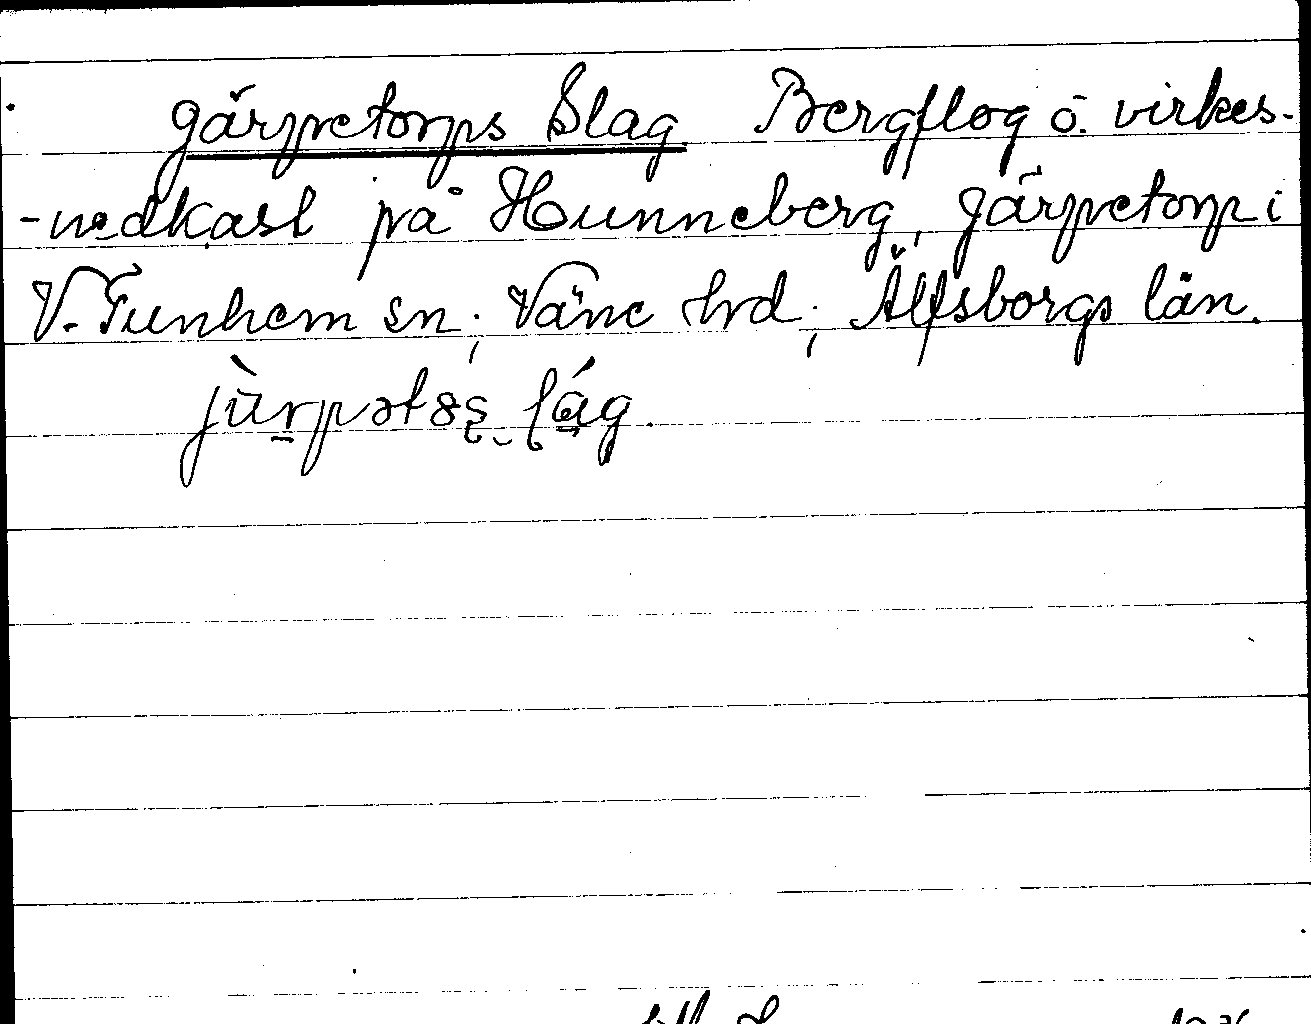 Gärpetorps Slag Bergflog o. virkes-
-nedkast på Hunneberg, Gärpetorp i
V. Tunhem sn; Väne hd; Älfsborgs län.